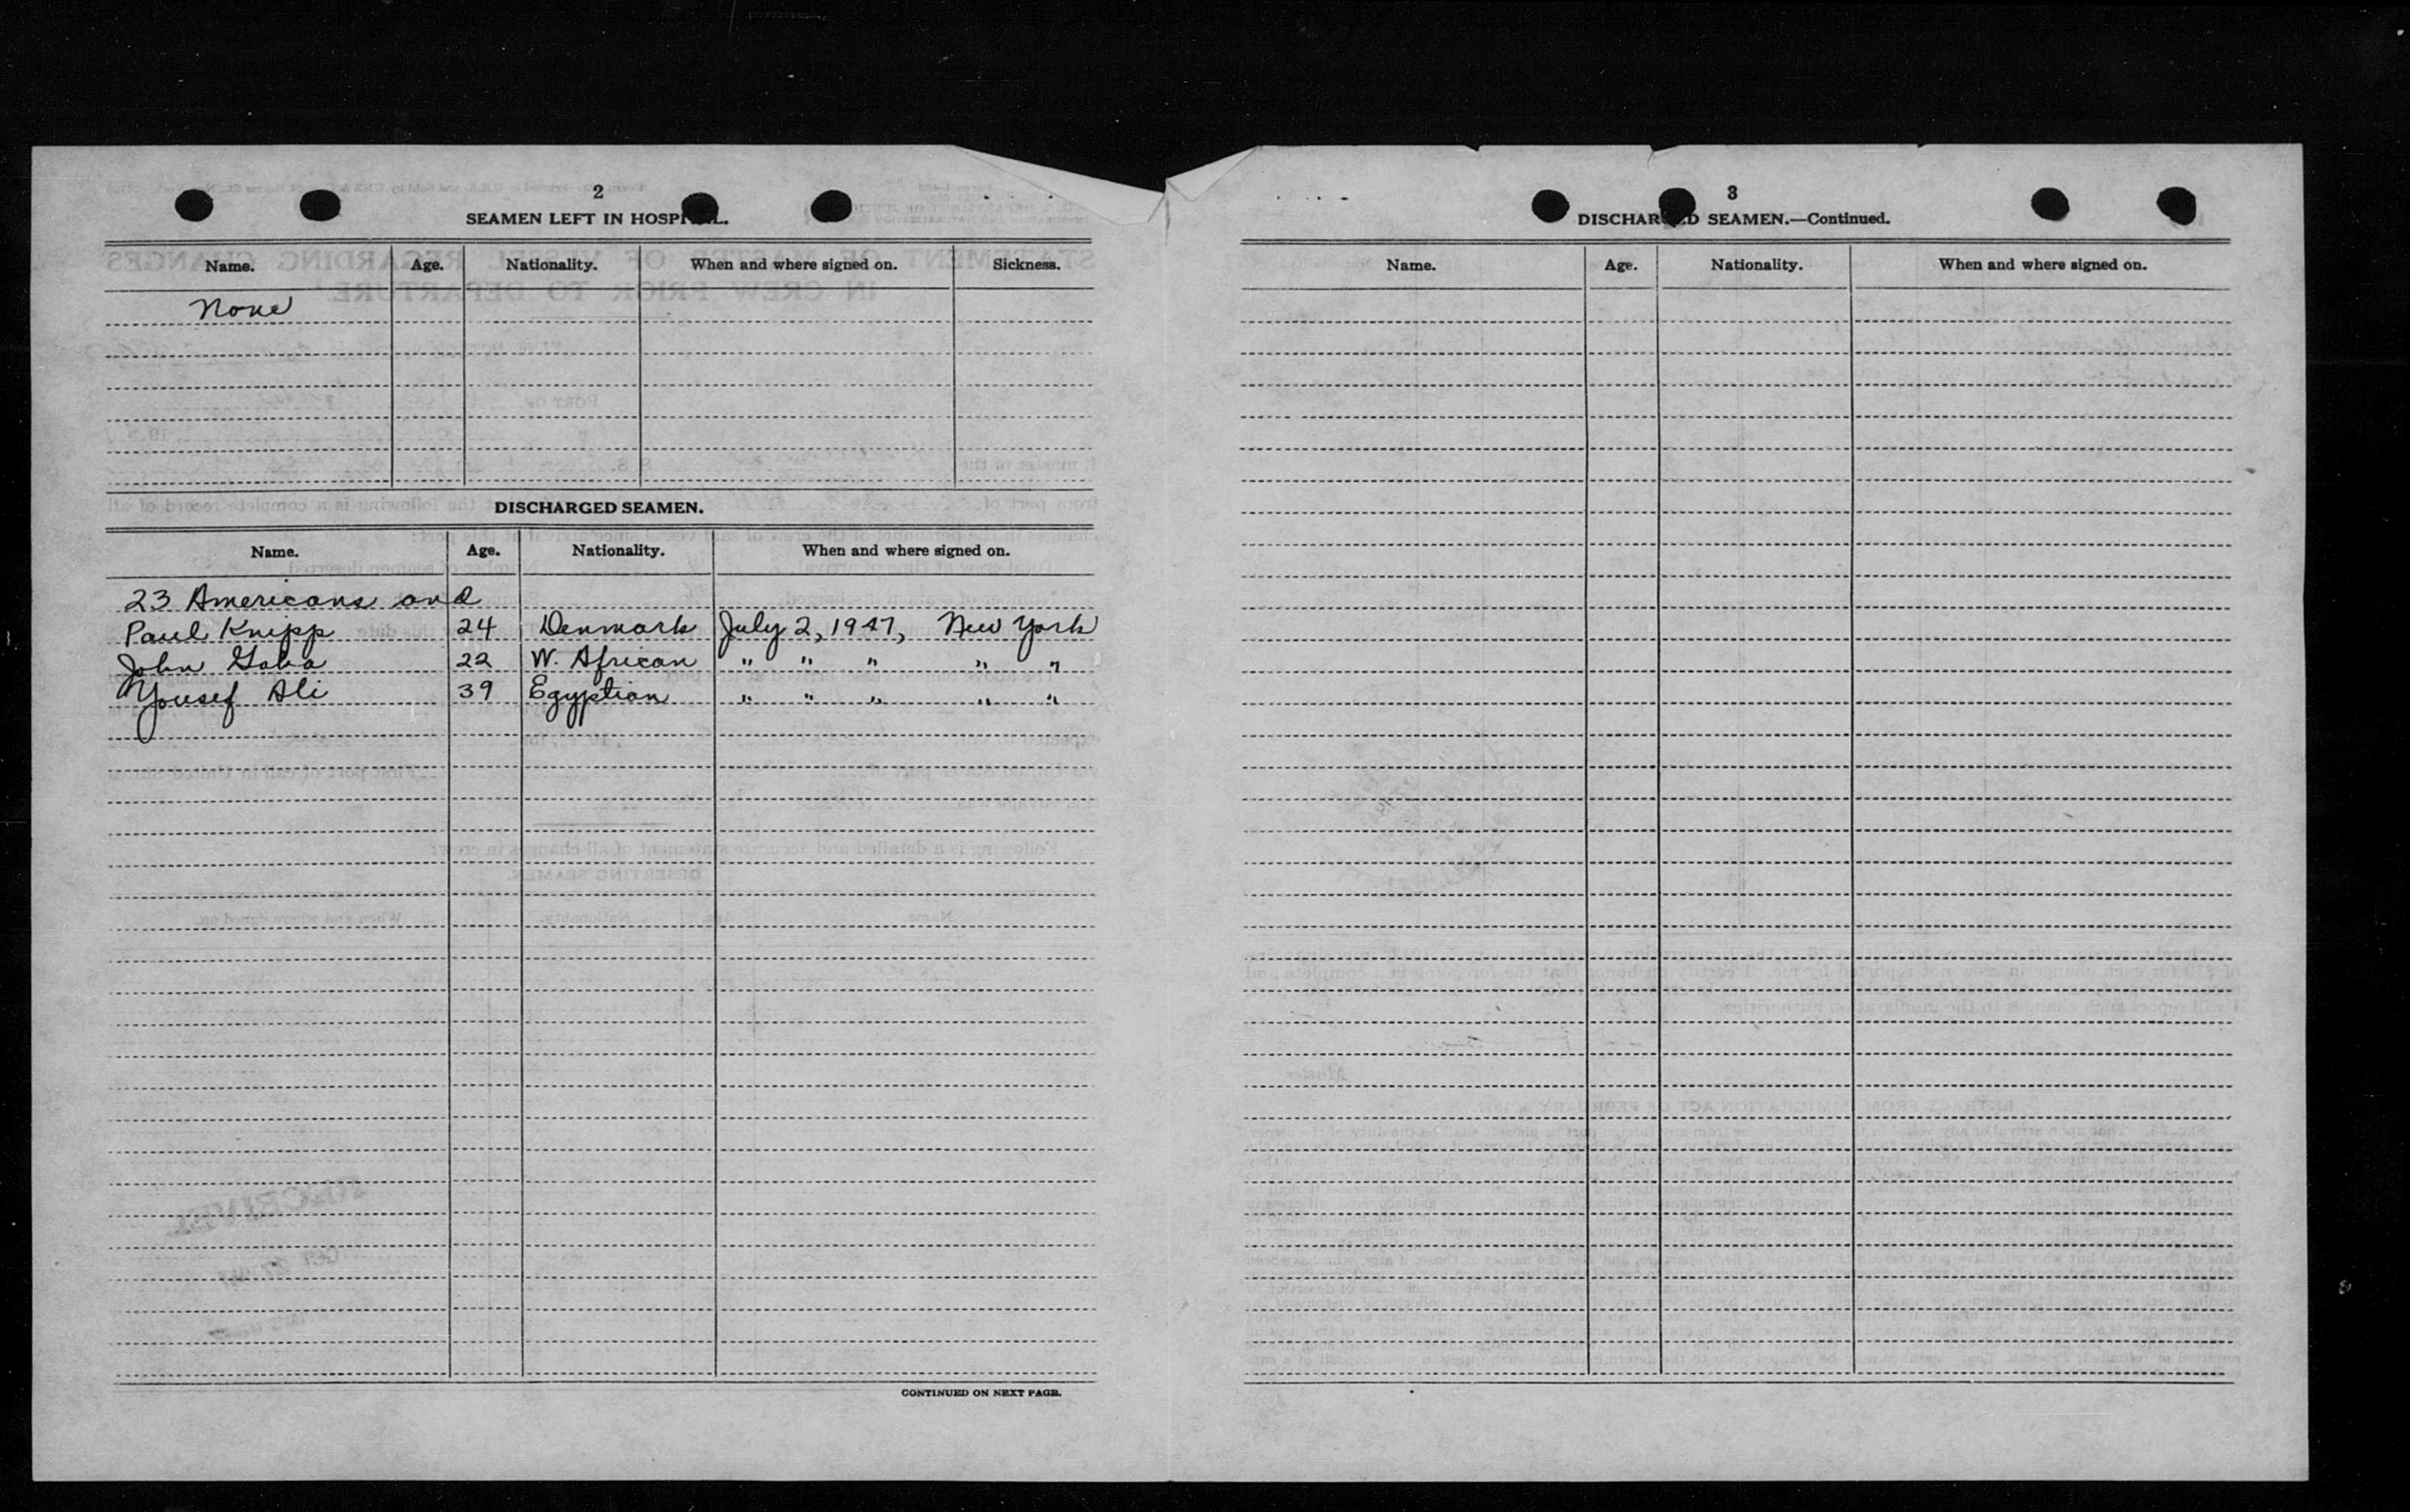 2
SEAMEN LEFT IN HOSPITAL.
Name. Age. Nationality. When and where signed on. Sickness.
None
DISCHARGED SEAMEN.
Name. Age. Nationality. When and where signed on.
23 Americans and
Paul Knipp 24 Denmark July 2, 1947, New York
John Gaba 22 W. African " " " " "
Yousef Ali 39 Egyptian " " " " "
CONTINUED ON NEXT PAGE.
3
DISCHARGED SEAMEN.—Continued.
Name. Age. Nationality. When and where signed on.